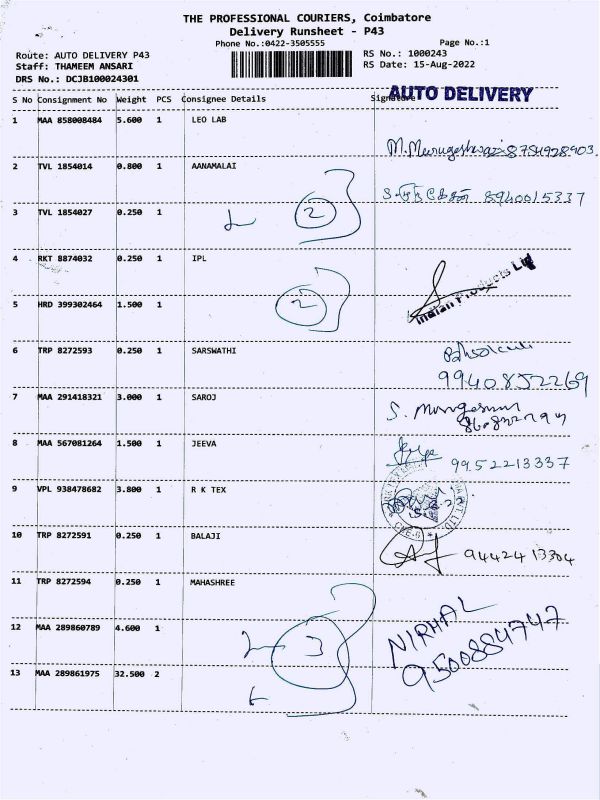 THE PROFESSIONAL COURIERS, Coimbatore
Delivery Runsheet - P43
Phone No.:0422-3505555 Page No.:1
Route: AUTO DELIVERY P43 RS No.: 1000243
Staff: THAMEEM ANSARI RS Date: 15-Aug-2022
DRS No.: DCJB100024301
AUTO DELIVERY
S No Consignment No Weight PCS Consignee Details Signature
1 MAA 858008484 5.600 1 LEO LAB
M. Murugeshwari 8754928903.
2 TVL 1854014 0.800 1 AANAMALAI
8940015337
3 TVL 1854027 0.250 1
2
4 RKT 8874032 0.250 1 IPL
Indian Products Ltd
5 HRD 399302464 1.500 1
2
6 TRP 8272593 0.250 1 SARSWATHI
9940852269
7 MAA 291418321 3.000 1 SAROJ
S. Murugesan
8 MAA 567081264 1.500 1 JEEVA
9952213337
9 VPL 938478682 3.800 1 R K TEX
10 TRP 8272591 0.250 1 BALAJI
9442413304
11 TRP 8272594 0.250 1 MAHASHREE
12 MAA 289860789 4.600 1
3
NIRMAL
9500884747
13 MAA 289861975 32.500 2